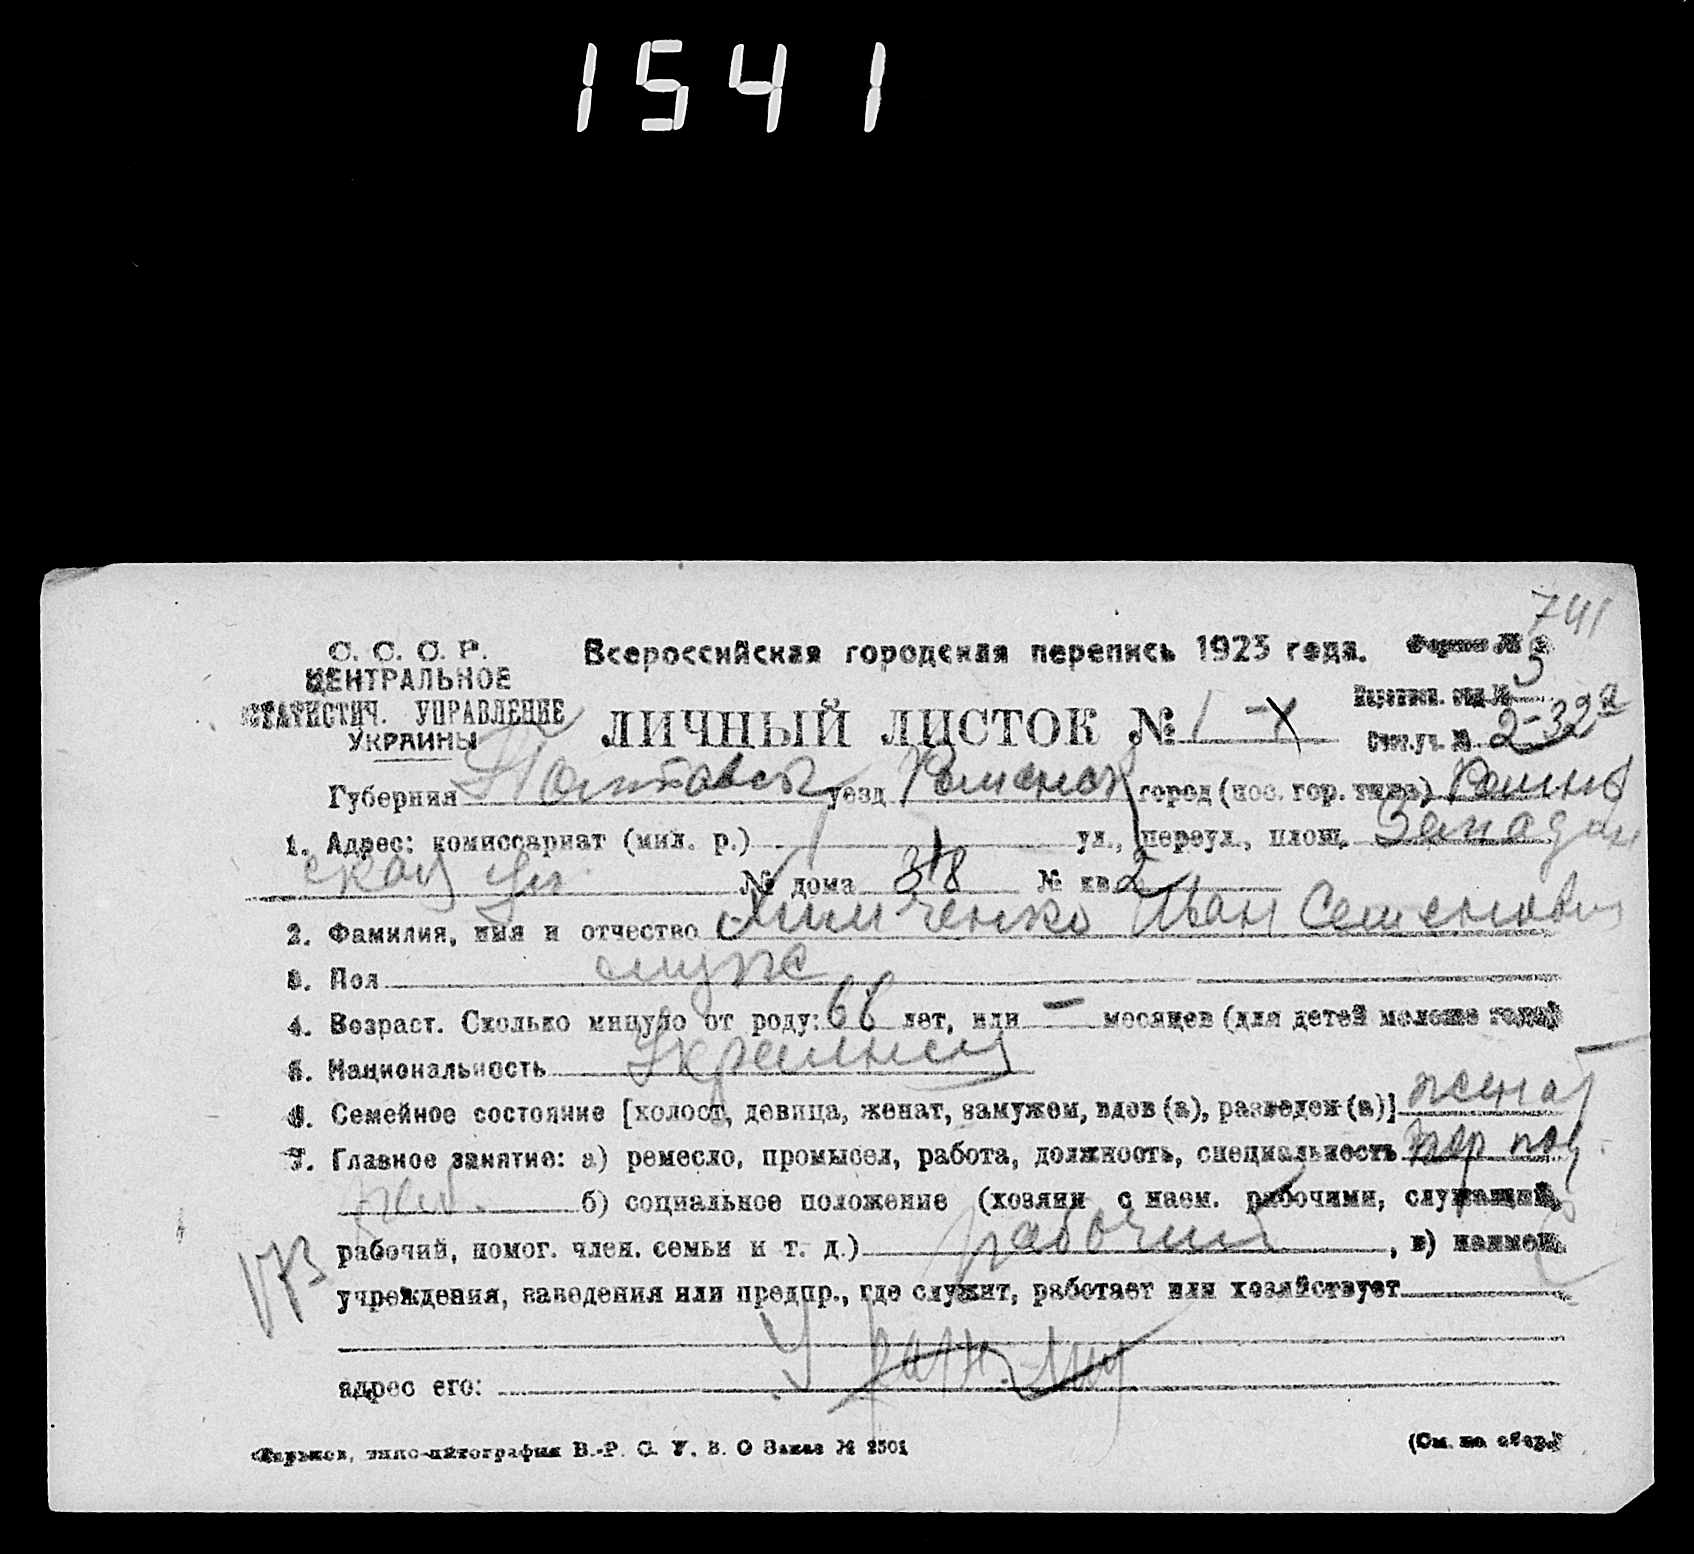 1541
741
С. С. С. Р.
ЦЕНТРАЛЬНОЕ
СТАТИСТИЧ. УПРАВЛЕНИЕ
УКРАИНЫ
Всероссийская городская перепись 1923 года.
Форма №
5
ЛИЧНЫЙ ЛИСТОК № 1
Счет.уч. № 2-32а
Губерния Полтавск уезд Роменск город (пос. гор. типа) Ромны
1. Адрес: комиссариат (мил. р.) ул., переул., площ. Западин
ская ул. № дома 38 № кв. 2
2. Фамилия, имя и отчество Химченко Иван Семенович
3. Пол муж
4. Возраст. Сколько минуло от роду: 66 лет, или — месяцев (для детей моложе года)
5. Национальность Украинец
6. Семейное состояние [холост, девица, женат, замужем, вдов (а), разведен (а)] женат
7. Главное занятие: а) ремесло, промысел, работа, должность, специальность
б) социальное положение (хозяин с наем. рабочими, служащий,
рабочий, помог. член. семьи и т. д.) рабочий, в) наимен.
173
учреждения, заведения или предпр., где служит, работает или хозяйствует
У
адрес его:
Харьков, типо-литография В.-Р. С. У. В. О Заказ № 2501
(См. на обор.)